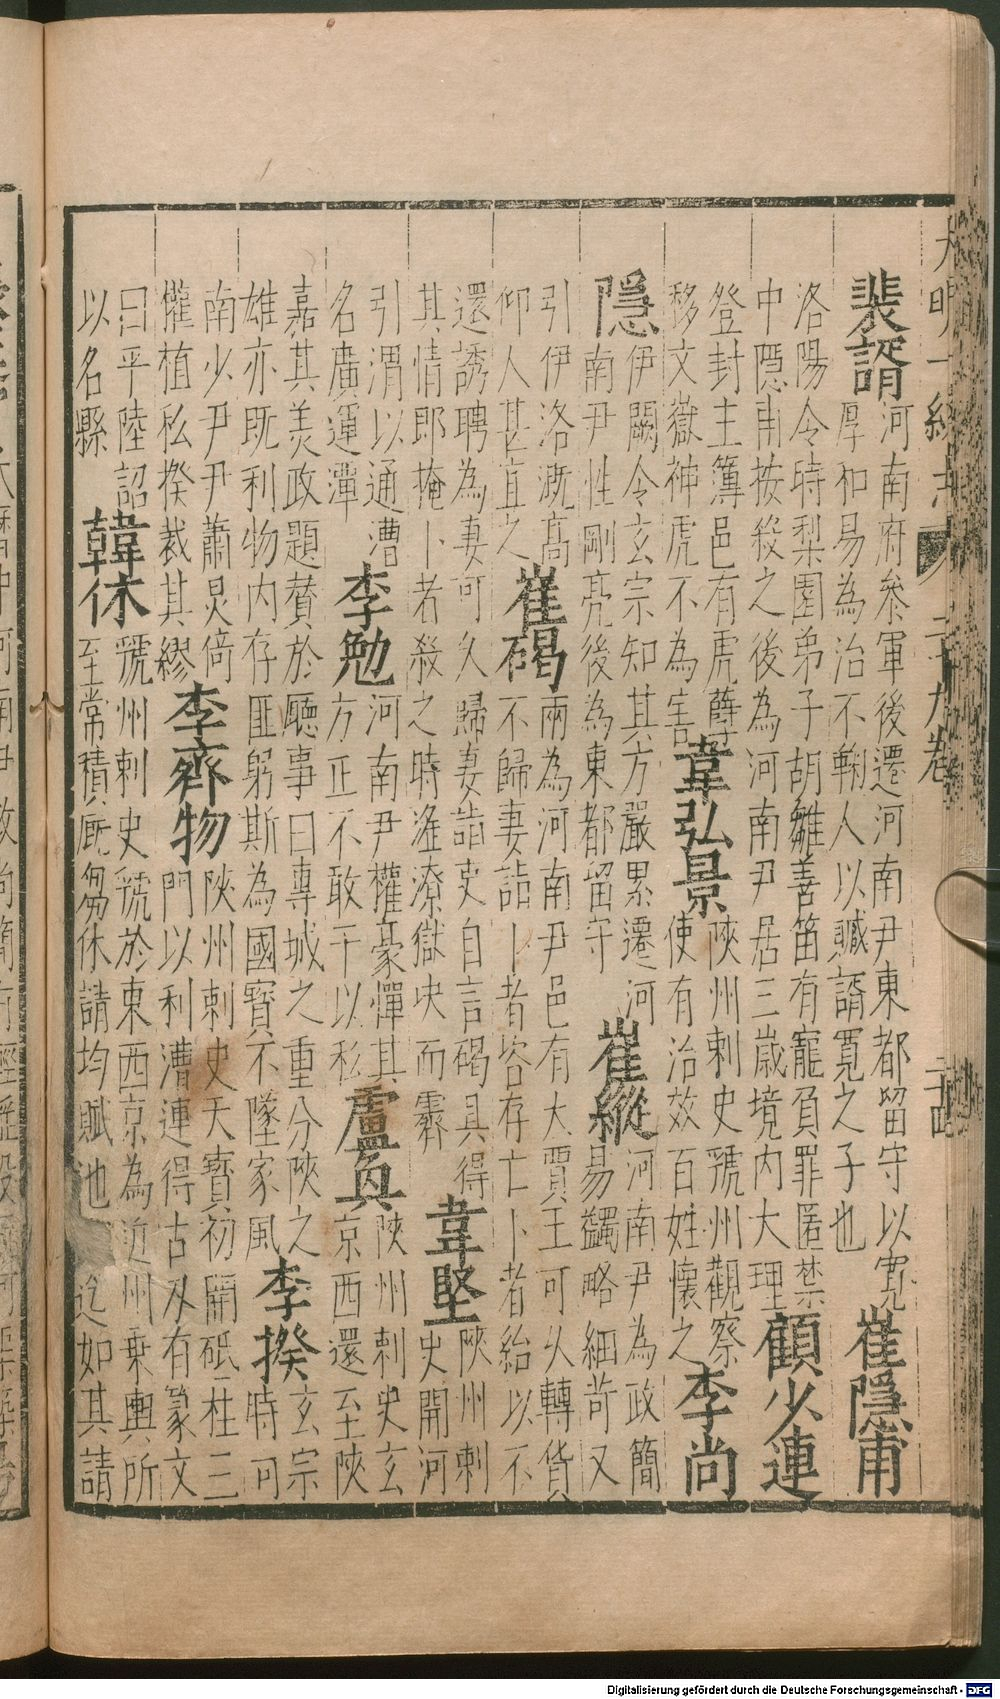 大明一統志 二十九卷
裴諝
河南府參軍後遷河南尹東都留守以寛
厚和易為治不鞠人以贓諝寬之子也
崔隱甫
洛陽令時梨園弟子胡雛善笛有寵負罪匿禁
中隱甫按殺之後為河南尹居三歲境内大理
顧少連
登封主簿邑有虎孽
移文嶽神虎不為害
韋弘景
陝州刺史虢州觀察
使有治效百姓懷之
李尚
隱
伊闕令玄宗知其方嚴累遷河
南尹性剛亮後為東都留守
崔縱
河南尹為政簡
易蠲略細苛又
引伊洛溉高
仰人甚宜之
崔碣
兩為河南尹邑有大賈王可久轉貨
不歸妻詣卜者咨存亡卜者紿以不
還誘聘為妻可久歸妻詣吏自言碣具得
其情即掩卜者殺之時滛潦獄决而霽
韋堅
陝州刺
史開河
引渭以通漕
名廣運潭
李勉
河南尹權豪憚其
方正不敢干以私
盧奐
陝州刺史玄
京西還至陝
嘉其美政題贊於廳事曰專城之重分陝之
雄亦既利物内存匪躬斯為國寳不墜家風
李揆
玄宗
時可
南少尹尹蕭炅倚
權植私揆裁其繆
李齊物
陝州刺史天寳初開砥柱三
門以利漕運得古刃有篆文
曰平陸詔
以名縣
韓休
虢州刺史虢於東西京為近州乗輿所
至常積厩芻休請均賦池迄如其請
Digitalisierung gefördert durch die Deutsche Forschungsgemeinschaft - DFG